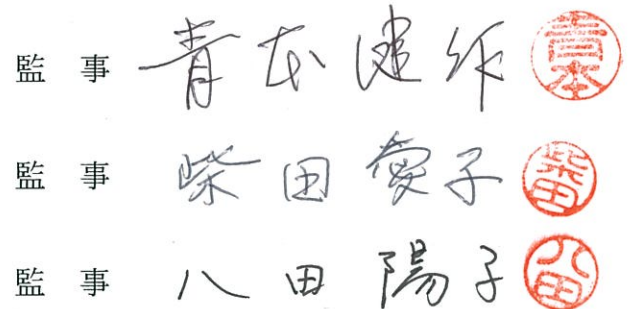 監事 青本健作 青本
監事 柴田愛子 柴田
監事 八田陽子 八田